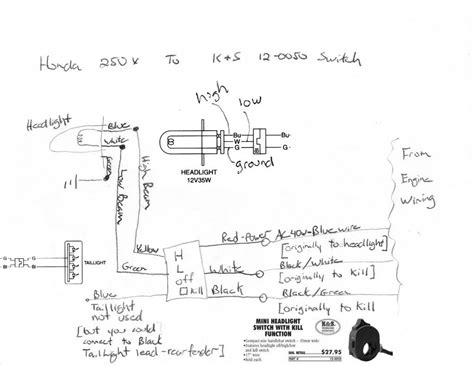 Honda 250x To K&S 12-0050 Switch
high
low
Headlight
Blue
White
green
Bu
W
G
Bu
W
G
Bu
G
ground
HEADLIGHT
12V35W
From
Engine
Wiring
Low Beam
High Beam
TAILLIGHT
Yellow
Green
Blue
H
L
off
kill
Red-Power
AC
Blue wire
[originally to headlight]
White
Black/White
[originally to kill]
Black
Black/Green
[originally to Kill
Taillight
not used
[but you could
connect to Black
Taillight lead - rear fender]
MINI HEADLIGHT
SWITCH WITH KILL
FUNCTION
K&S
$27.95